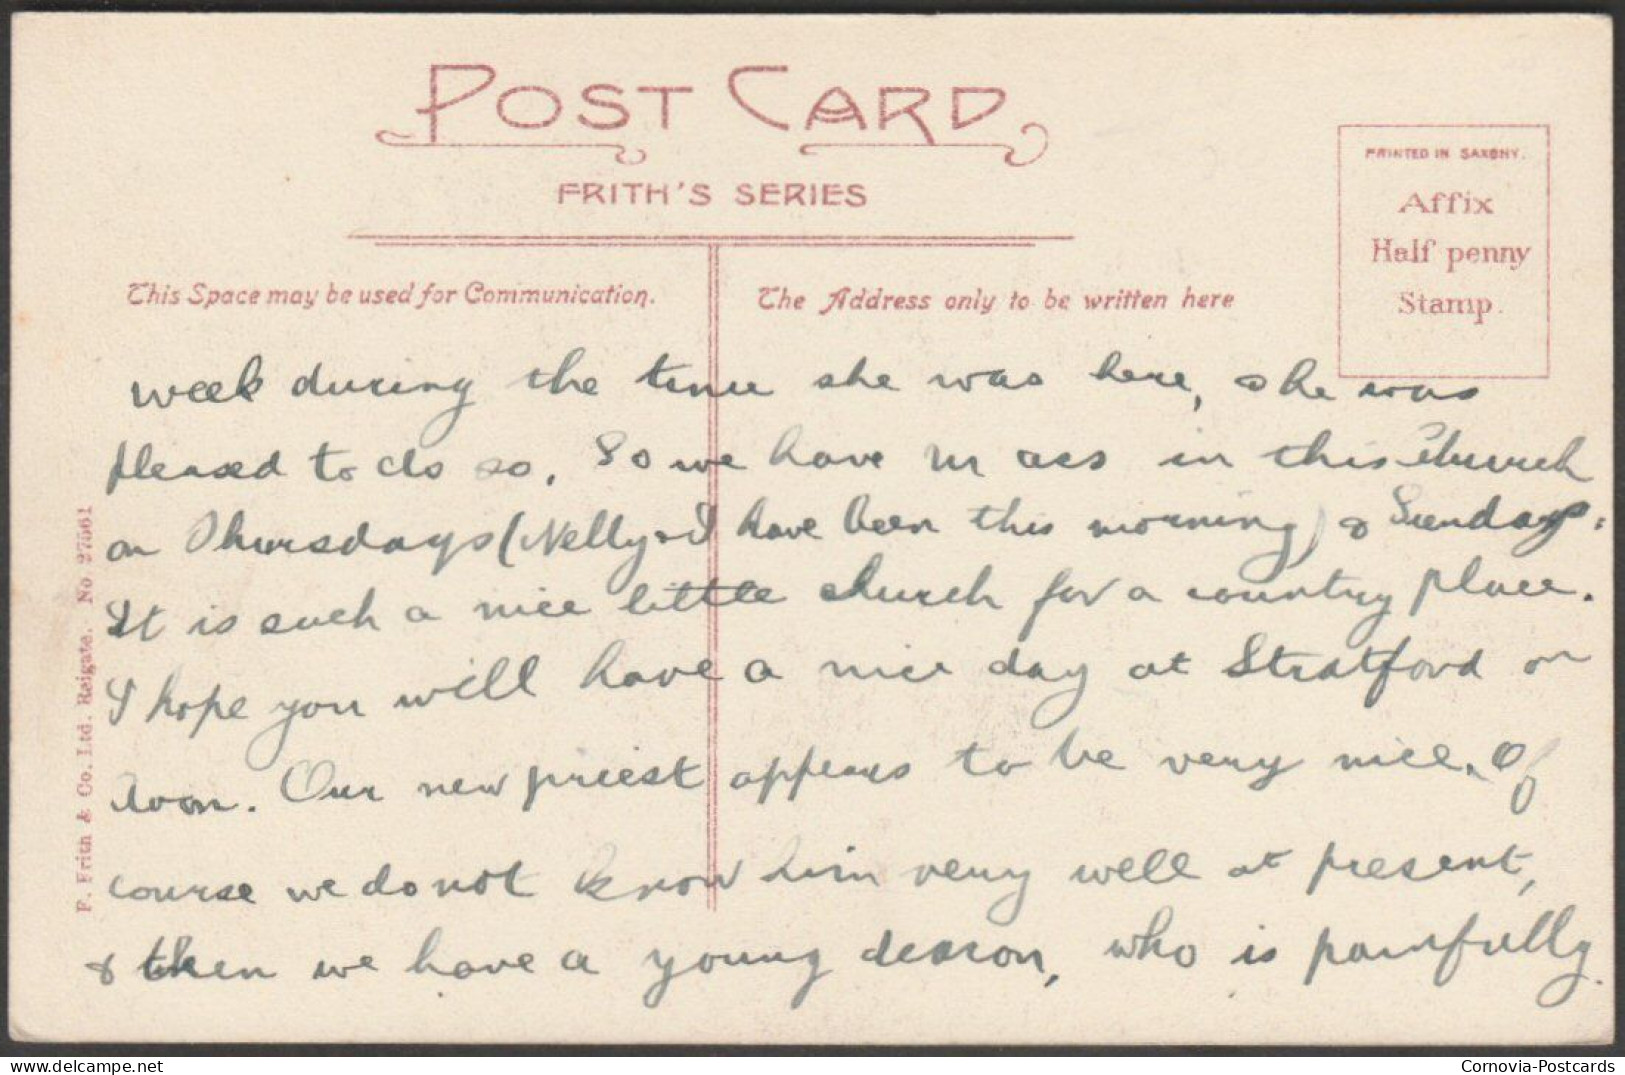 POST CARD
FRITH'S SERIES
PRINTED IN SAXONY.
Affix
Half penny
Stamp.
This Space may be used for Communication.
The Address only to be written here
week during the time she was here, & he was
pleased to do so. So we have Mass in this Church
on Thursdays (Nelly & I have been this morning) & Sundays.
It is such a nice little church for a country place.
I hope you will have a nice day at Stratford on
Avon. Our new priest appears to be very nice. Of
course we do not know him very well at present,
& then we have a young deacon, who is painfully
F. Frith & Co. Ltd. Reigate. No 27561
Delcampe.net
Cornovia-Postcards